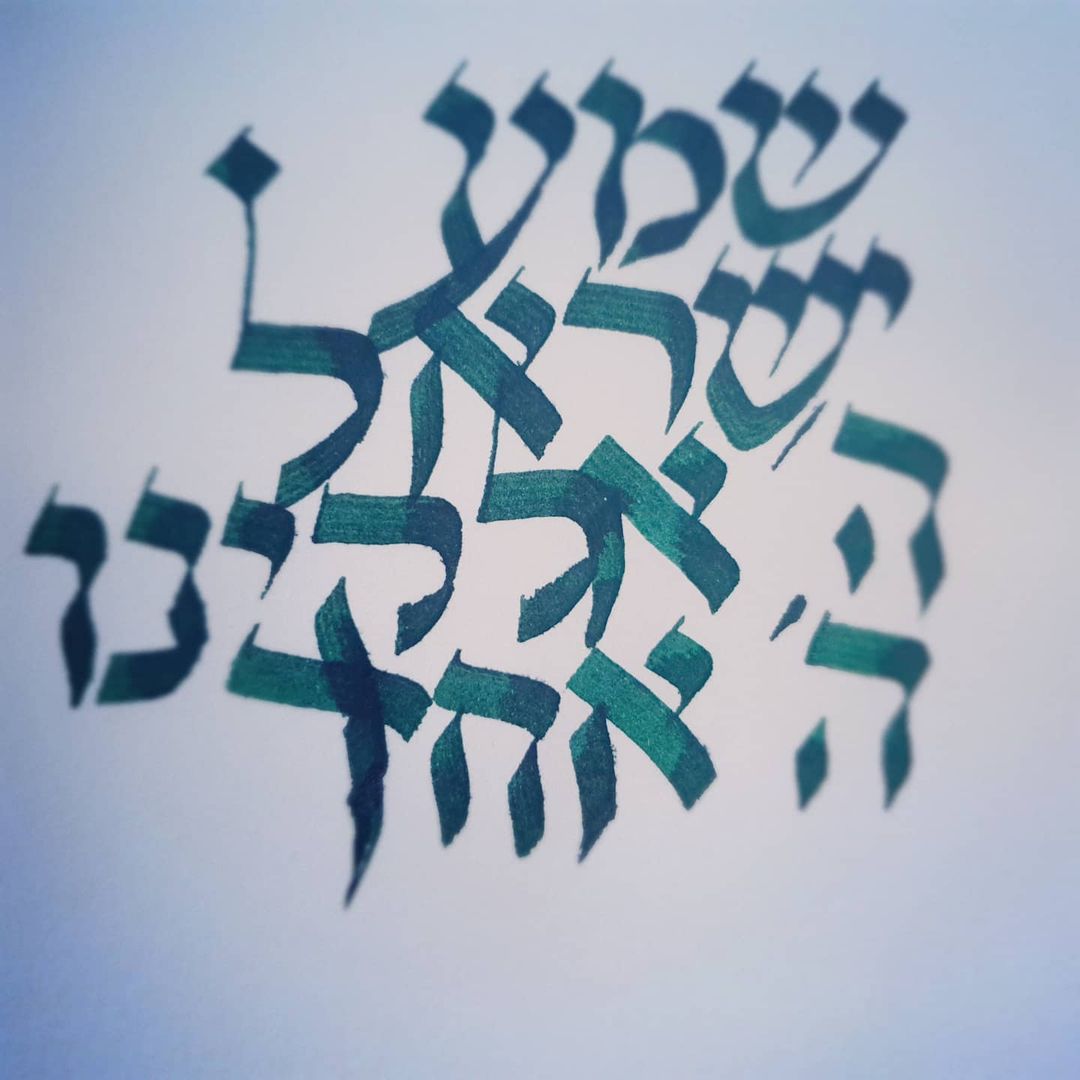 שמע
ישראל
ה' אלקינו
ה' אחד